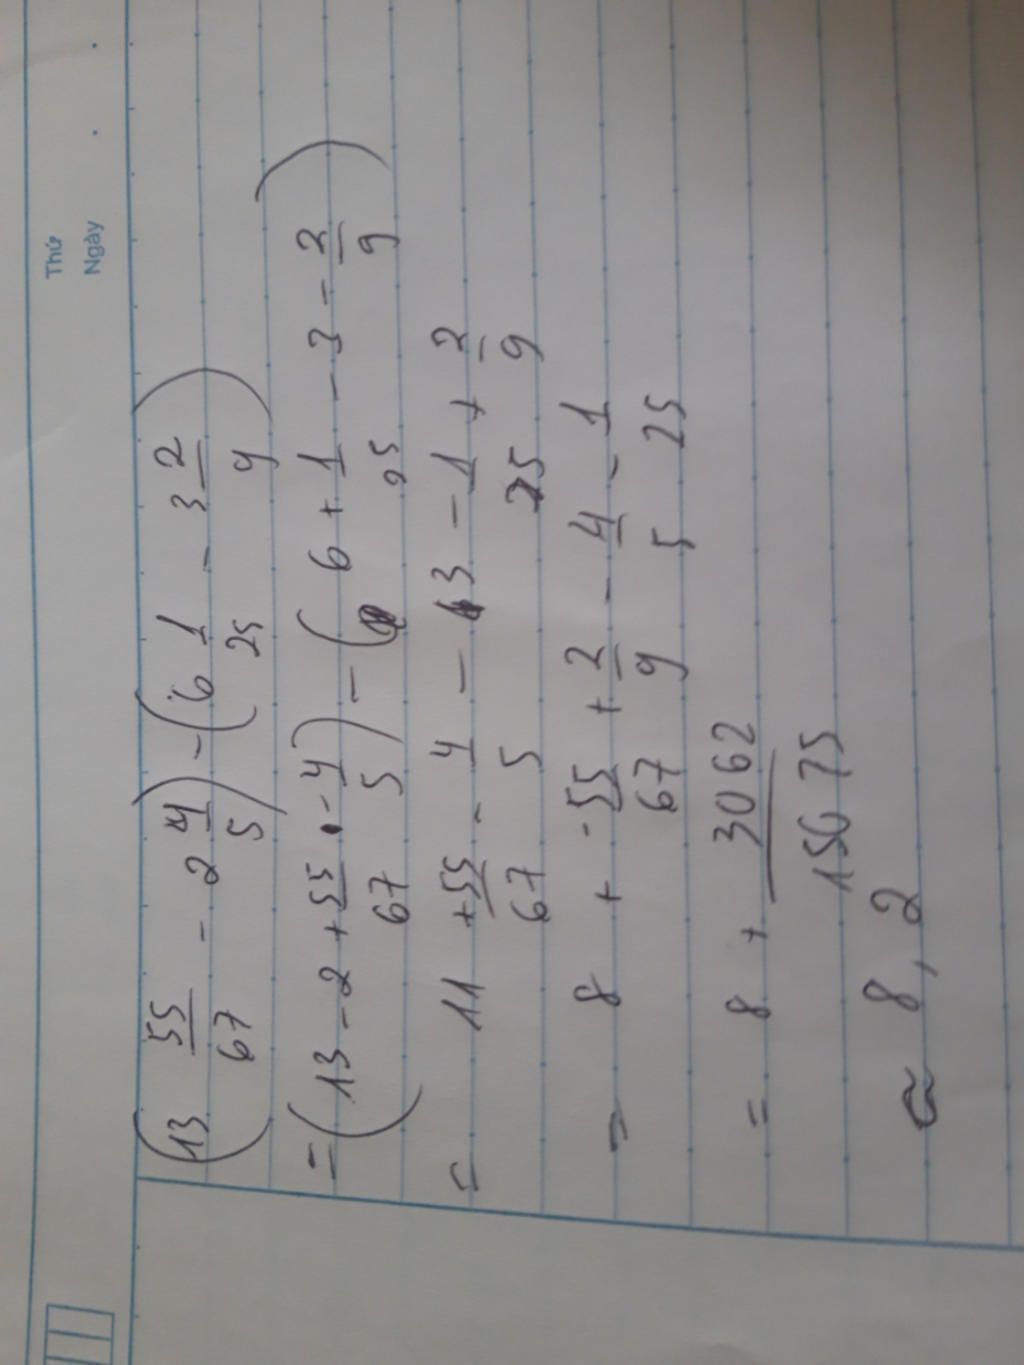 Thứ .
Ngày .
(13 55/67 - 2 4/5) - (6 1/25 - 3 2/9)
= (13 - 2 + 55/67 - 4/5) - (6 + 1/25 - 3 - 2/9)
= 11 + 55/67 - 4/5 - 3 - 1/25 + 2/9
= 8 + 55/67 + 2/9 - 4/5 - 1/25
= 8 + 3062/15075
≈ 8,2